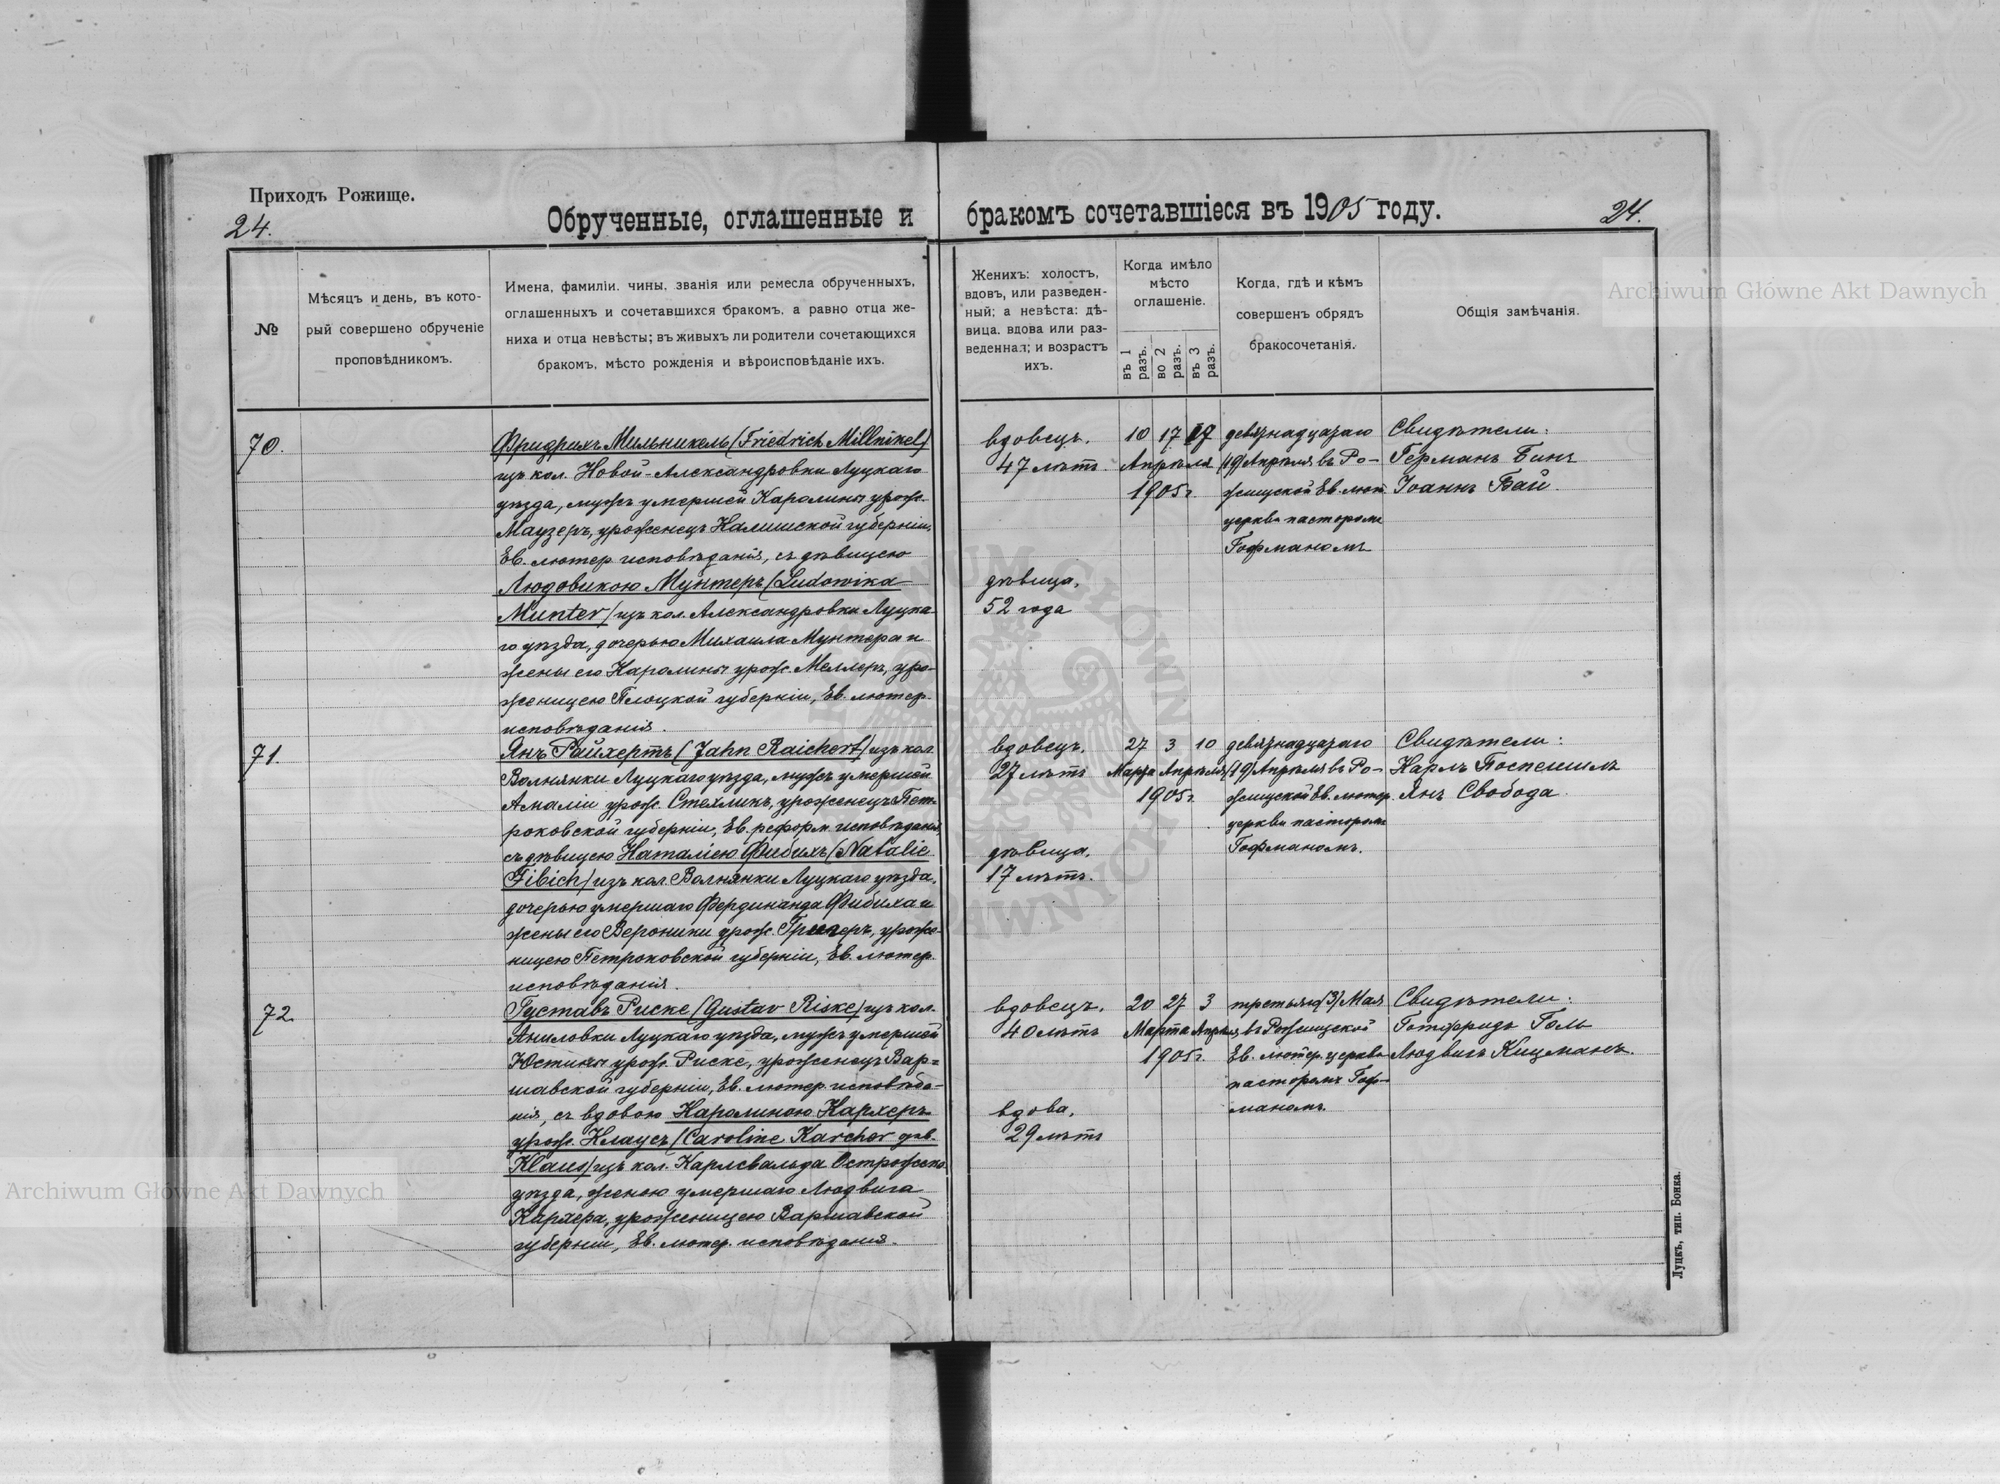 Приходъ Рожище.
24.
Обрученные, оглашенные и
бракомъ сочетавшіеся въ 1905 году.
24.
№
Мѣсяцъ и день, въ кото-
рый совершено обрученіе
проповѣдникомъ.
Имена, фамиліи. чины, званія или ремесла обрученныхъ,
оглашенныхъ и сочетавшихся бракомъ, а равно отца же-
ниха и отца невѣсты; въ живыхъ ли родители сочетающихся
бракомъ, мѣсто рожденія и вѣроисповѣданіе ихъ.
Женихъ: холостъ,
вдовъ, или разведен-
ный; а невѣста: дѣ-
вица. вдова или раз-
веденная; и возрастъ
ихъ.
Когда имѣло
мѣсто
оглашеніе.
въ 1 разъ.
во 2 разъ.
въ 3 разъ.
Когда, гдѣ и кѣмъ
совершенъ обрядъ
бракосочетанія.
Общія замѣчанія.
70.
Фридрихъ Мильникель (Friedrich Millnikel)
изъ кол. Новой-Александровки Луцкаго
уѣзда, мужъ умершей Каролины урож.
Маузеръ, уроженецъ Калишской губерніи,
Ев. лютер исповѣданія, съ дѣвицею
Людовикою Мунтеръ (Ludowika
Munter) изъ кол. Александровки Луцка-
го уѣзда, дочерью Михаила Мунтера и
жены его Каролины урож. Меллеръ, уро-
женицею Плоцкой губерніи, Ев. лютер.
исповѣданія.
вдовецъ.
47 лѣтъ
дѣвица,
52 года
10 17 17
Апрѣля
1905 г.
девятнадцатаго
(19) Апрѣля въ Ро-
жищской Ев. лют.
церкви пасторомъ
Гофманомъ
Свидѣтели:
Германъ Бинъ
Іоаннъ Бай.
71.
Янъ Райхертъ (Jahn Raichert) изъ кол.
Волнянки Луцкаго уѣзда, мужъ умершей
Амаліи урож. Стехликъ, уроженецъ Пет-
роковской губерніи, Ев. реформ исповѣданія
съ дѣвицею Наталіею Фибихъ (Natalie
Fibich) изъ кол. Волнянки Луцкаго уѣзда,
дочерью умершаго Фердинанда Фибиха и
жены его Вероники урож. уроже-
ницею Петроковской губерніи, Ев. лютер.
исповѣданія.
вдовецъ.
27 лѣтъ
дѣвица,
17 лѣтъ.
27 3 10
Марта Апрѣля
1905 г.
девятнадцатаго
(19) Апрѣля въ Ро-
жищской Ев. лютер.
церкви пасторомъ
Гофманомъ.
Свидѣтели:
Карлъ Поспешилъ
Янъ Свобода.
72
Густавъ Риске (Gustav Riske) изъ кол.
Аниловки Луцкаго уѣзда, мужъ умершей
Юстины урож. Риске, уроженецъ Вар-
шавской губерніи, Ев. лютер исповѣда-
нія, съ вдовою Каролиною Кархеръ
урож. Клаусъ (Caroline Karcher geb.
Klaus) изъ кол. Карлсвальда Острожско.
уѣзда, женою умершаго Людвига
Кархера, уроженицею Варшавской
губерніи, Ев. лютер. исповѣданія.
вдовецъ.
40 лѣтъ
вдова,
29 лѣтъ
20 27 3
Марта Апрѣля
1905 г.
третьяго (3) Мая
въ Рожищской
Ев. лютер. церкви
пасторомъ Гоф-
маномъ.
Свидѣтели:
Готфридъ Голь
Людвигъ Кицманъ.
Луцкъ, тип. Бонка.
Archiwum Główne Akt Dawnych
Archiwum Główne Akt Dawnych